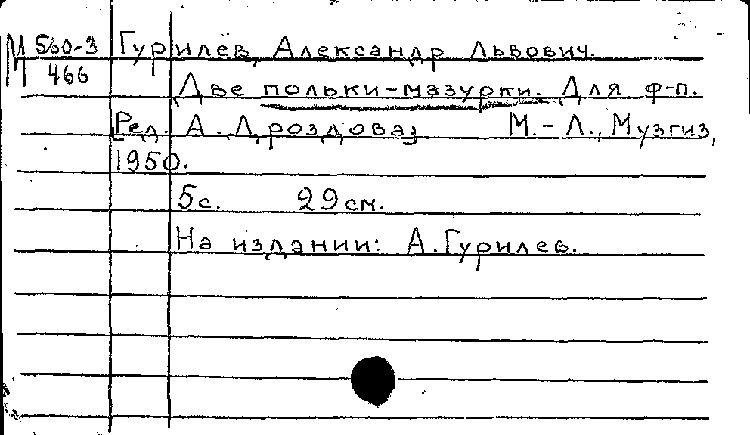 М 560-3 Гурилев, Александр Львович.
466
Две польки-мазурки. Для ф-п.
[Ред. А. Дроздова] М.-Л., Музгиз,
1950.
5с. 29см.
На издании: А.Гурилев.